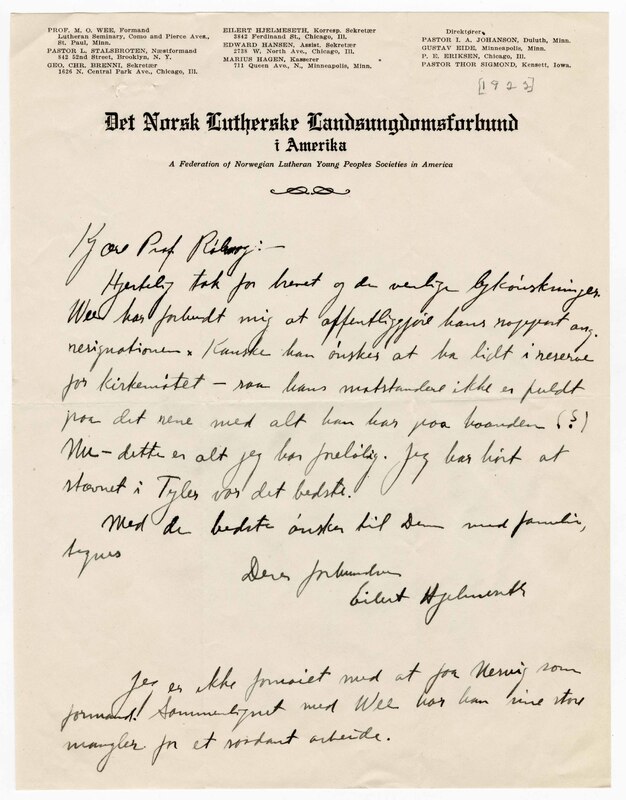 PROF. M. O. WEE, Formand
Lutheran Seminary, Como and Pierce Aves.,
St. Paul, Minn.
PASTOR L. STALSBROTEN, Næstformand
842 52nd Street, Brooklyn, N. Y.
GEO. CHR. BRENNI, Sekretær
1626 N. Central Park Ave., Chicago, Ill.
EILERT HJELMESETH, Korresp. Sekretær
3842 Ferdinand St., Chicago, Ill.
EDWARD HANSEN, Assist. Sekretær
2738 W. North Ave., Chicago, Ill.
MARIUS HAGEN, Kasserer
711 Queen Ave., N., Minneapolis, Minn.
Direktører
PASTOR I. A. JOHANSON, Duluth, Minn.
GUSTAV EIDE, Minneapolis, Minn.
P. E. ERIKSEN, Chicago, Ill.
PASTOR THOR SIGMOND, Kensett, Iowa.
[1923]
Det Norsk Lutherske Landsungdomsforbund
i Amerika
A Federation of Norwegian Lutheran Young Peoples Societies in America
Kjære Prof.
Hjertelig tak for brevet og de venlige lykønskninger.
Wee har forbudt mig at offentliggjøre hans rapport ang.
resignationen. Kanske han ønsker at ha lidt i reserve
for kirkemøtet – saa hans motstandere ikke er
paa det rene med alt han har paa haanden (?)
Nu – dette er alt jeg har foreløbig. Jeg har hørt at
stevnet i Tyler var det bedste.
Med de bedste ønsker til Dem med familie,
tegnes
Deres forbundne
Eilert Hjelmeseth
Jeg er ikke fornøiet med at faa som
formand! Sammenlignet med Wee har han sine store
mangler for et saadant arbeide.